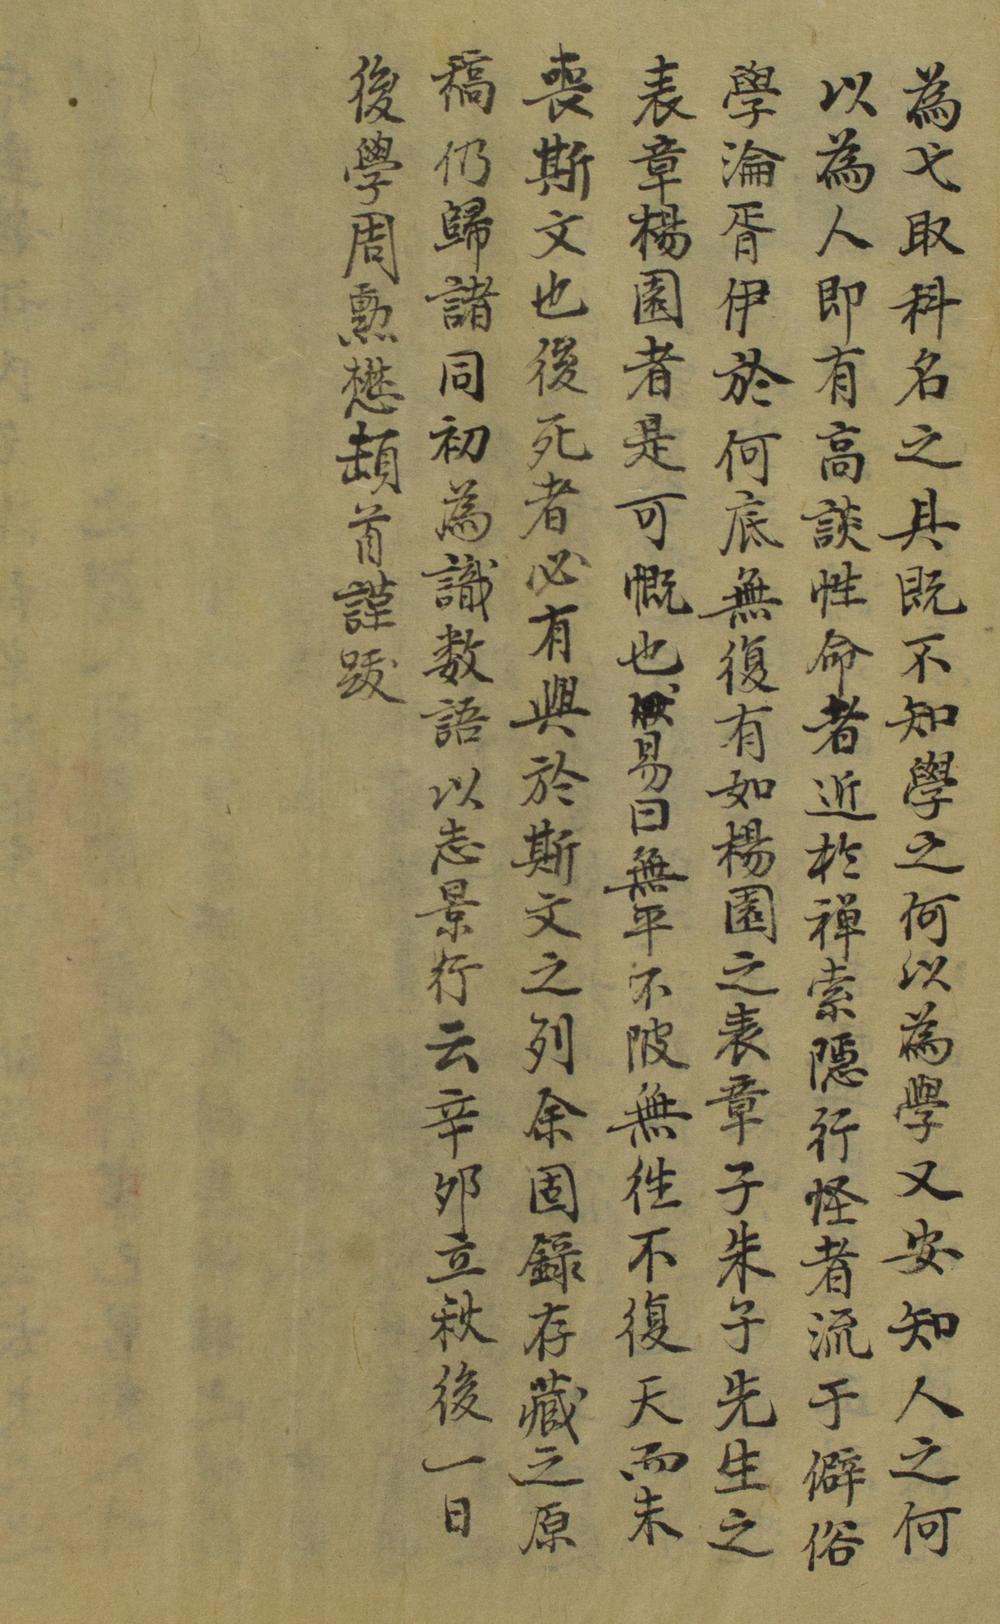 為弋取科名之具既不知學之何以為學又安知人之何
以為人即有高談性命者近於禅索隱行怪者流于僻俗
學淪胥伊於何底無復有如楊園之表章子朱子先生之
表章楊園者是可慨也易曰無平不陂無往不復天而未
喪斯文也後死者必有與於斯文之列余固錄存藏之原
稿仍歸諸同初為識数語以志景行云辛夘立秋後一日
後學周勳懋頓首謹跋